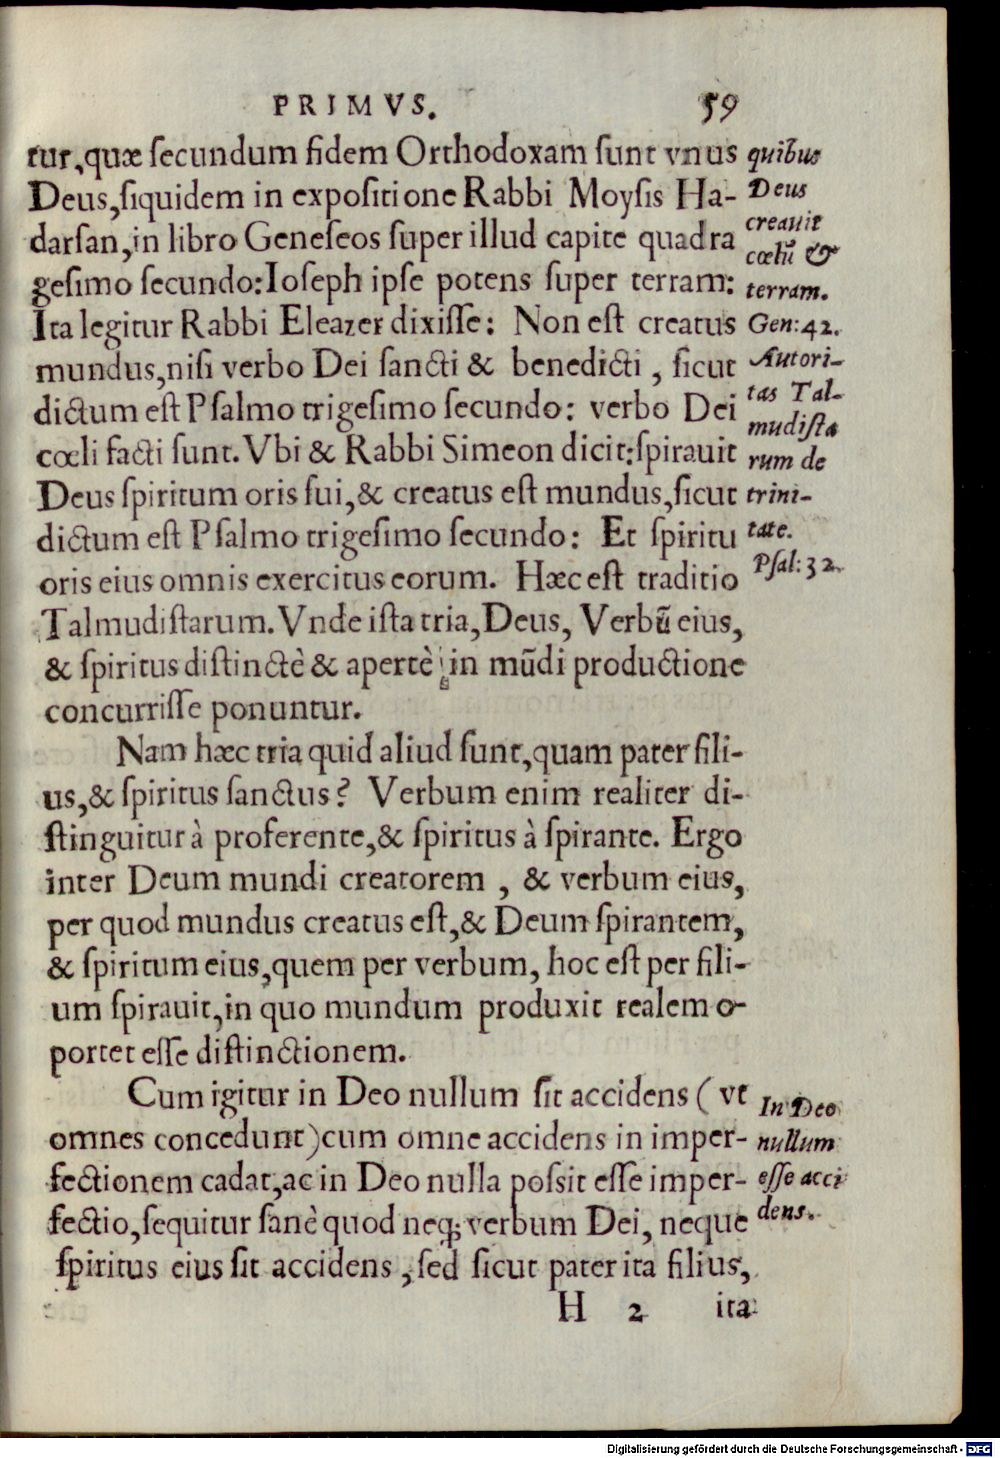 PRIMVS. 59
tur, quæ ſecundum fidem Orthodoxam ſunt vnus
Deus, ſiquidem in expoſitione Rabbi Moyſis Ha-
darſan, in libro Geneſeos ſuper illud capite quadra
geſimo ſecundo: Ioſeph ipſe potens ſuper terram:
Ita legitur Rabbi Eleazer dixiſſe: Non eſt creatus
mundus, niſi verbo Dei ſancti & benedicti, ſicut
dictum eſt Pſalmo trigeſimo ſecundo: verbo Dei
cœli facti ſunt. Vbi & Rabbi Simeon dicit: ſpirauit
Deus ſpiritum oris ſui, & creatus eſt mundus, ſicut
dictum eſt Pſalmo trigeſimo ſecundo: Et ſpiritu
oris eius omnis exercitus eorum. Hæc eſt traditio
Talmudiſtarum. Vnde iſta tria, Deus, Verbũ eius,
& ſpiritus diſtinctè & apertè in mũdi productione
concurriſſe ponuntur.
Nam hæc tria quid aliud ſunt, quam pater fili-
us, & ſpiritus ſanctus? Verbum enim realiter di-
ſtinguitur à proferente, & ſpiritus à ſpirante. Ergo
inter Deum mundi creatorem, & verbum eius,
per quod mundus creatus eſt, & Deum ſpirantem,
& ſpiritum eius, quem per verbum, hoc eſt per fili-
um ſpirauit, in quo mundum produxit realem o-
portet eſſe diſtinctionem.
Cum igitur in Deo nullum ſit accidens (vt
omnes concedunt) cum omne accidens in imper-
fectionem cadat, ac in Deo nulla poſsit eſſe imper-
fectio, ſequitur ſanè quod neq; verbum Dei, neque
ſpiritus eius ſit accidens, ſed ſicut pater ita filius,
H 2 ita
quibus
Deus
creauit
cœlũ &
terram.
Gen: 42.
Autori-
tas Tal-
mudiſta
rum de
trini-
tate.
Pſal: 32.
In Deo
nullum
eſſe acci
dens.
Digitalisierung gefördert durch die Deutsche Forschungsgemeinschaft - DFG